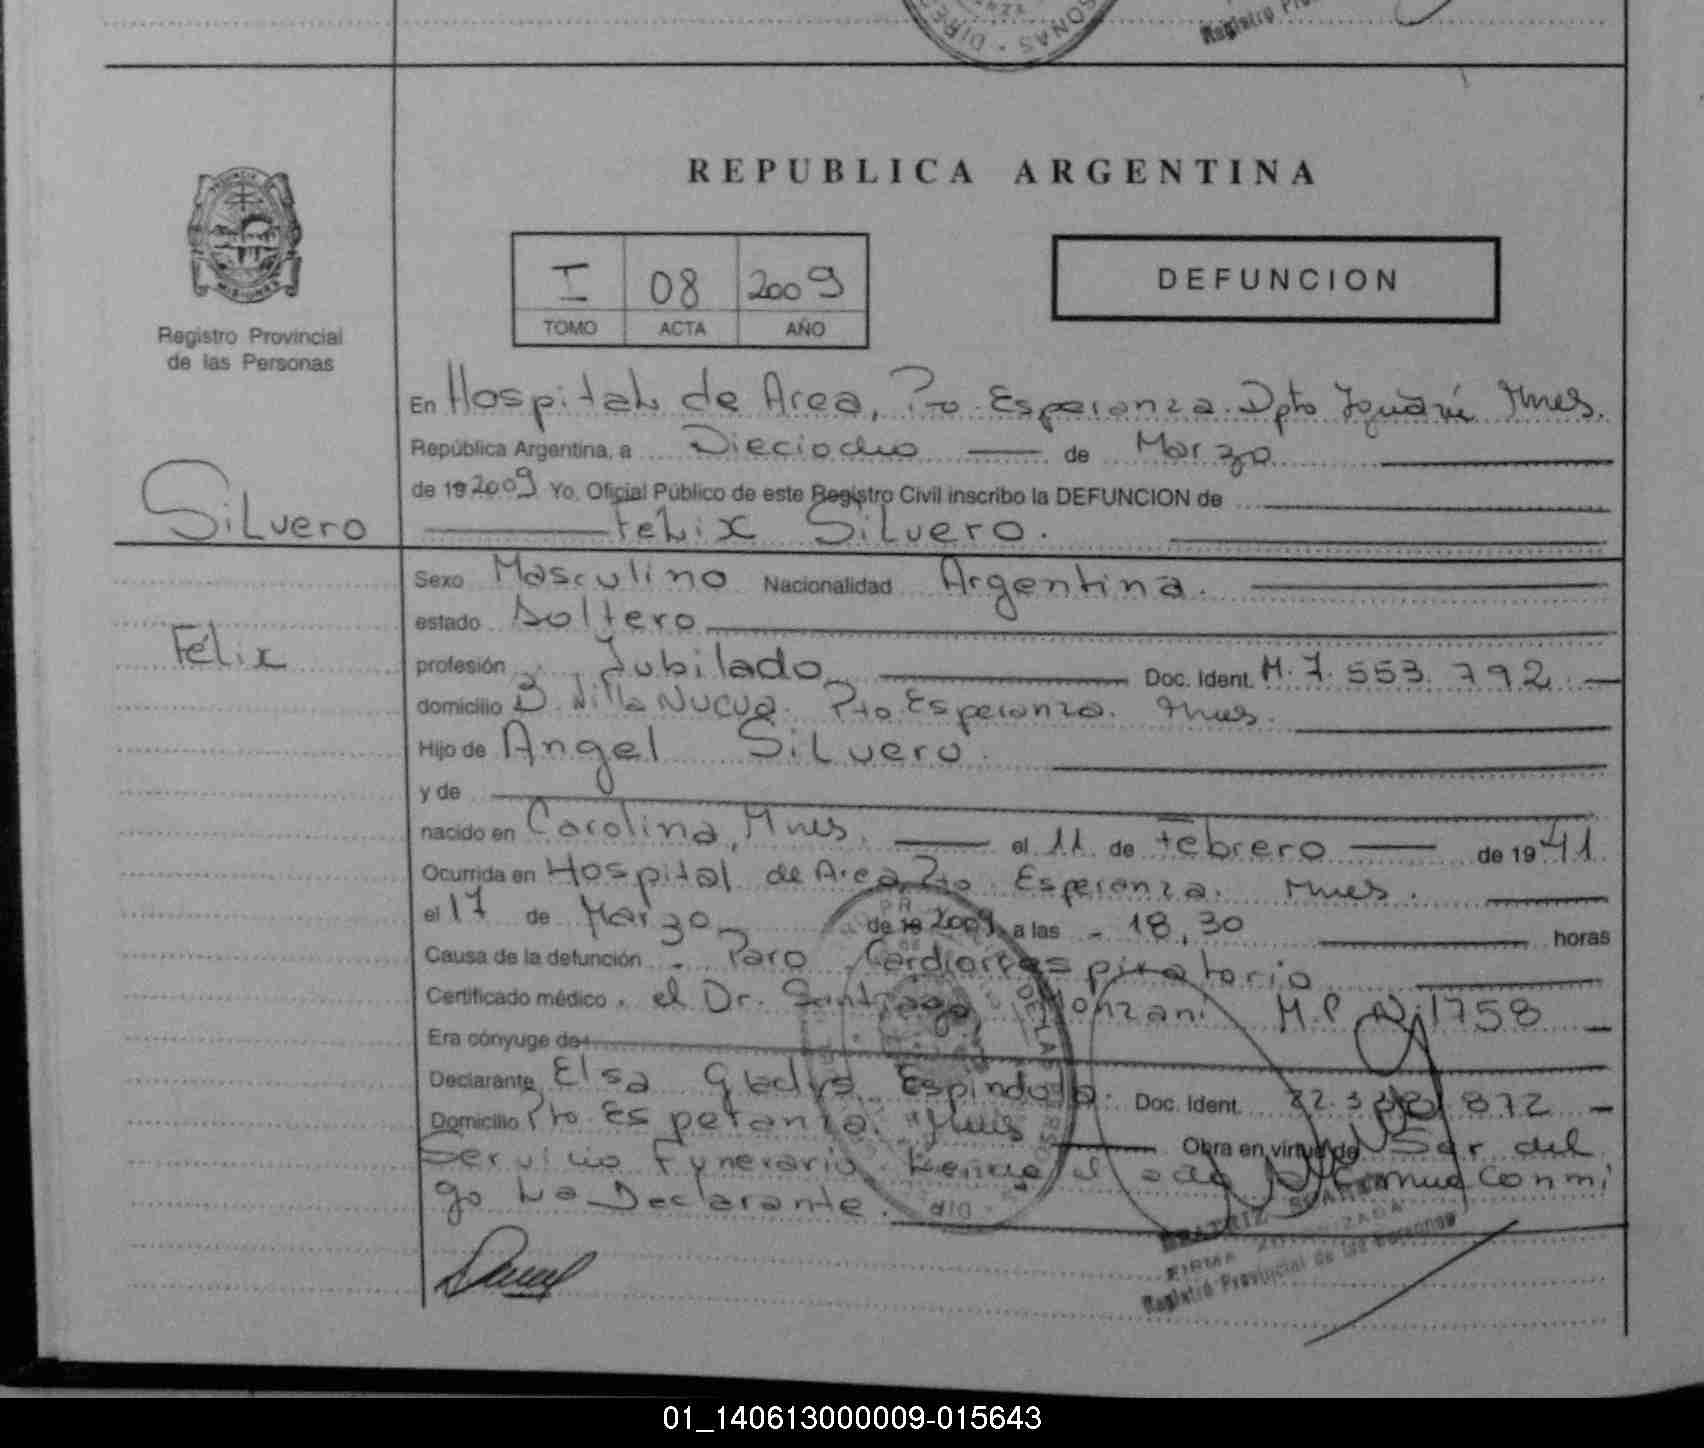 DIREC
SONAS
Registro Pro
REPUBLICA ARGENTINA
PROVINCIA
MISIONES
Registro Provincial
de las Personas
I 08 2009
TOMO ACTA AÑO
DEFUNCION
En Hospital de Area, Pto Esperanza. Dpto Iguazú Mnes.
República Argentina, a Dieciocho de Marzo
de 19 2009 Yo, Oficial Público de este Registro Civil inscribo la DEFUNCION de
Silvero
Felix Silvero.
Sexo Masculino Nacionalidad Argentina.
estado Soltero
Félix
profesión Jubilado Doc. Ident. M. 7.553.792
domicilio B. Villa Nueva. Pto Esperanza. Mnes.
Hijo de Angel Silvero.
y de
nacido en Carolina, Mnes. el 11 de Febrero de 1941
Ocurrida en Hospital de Area Pto Esperanza. Mnes.
el 17 de Marzo de 19 2009 a las - 18,30 horas
Causa de la defunción - Paro Cardiorrespiratorio
Certificado médico. el Dr. Santiago Monzani M.P. N. 1758
Era cónyuge de
Declarante Elsa Gladys Espindola. Doc. Ident. 872
Domicilio Pto Esperanza. Mnes Obra en virtud de Ser del
Servicio Funerario. el acta Conmi
go La Declarante.
BEATRIZ
FIRMA AUTORIZADA
Registro Provincial de las Personas
01_140613000009-015643